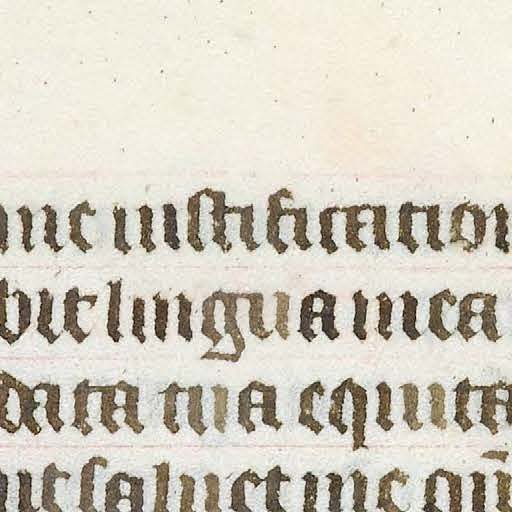 me iustification
bit lingua mea
data tua equita
ut saluet me qm̄